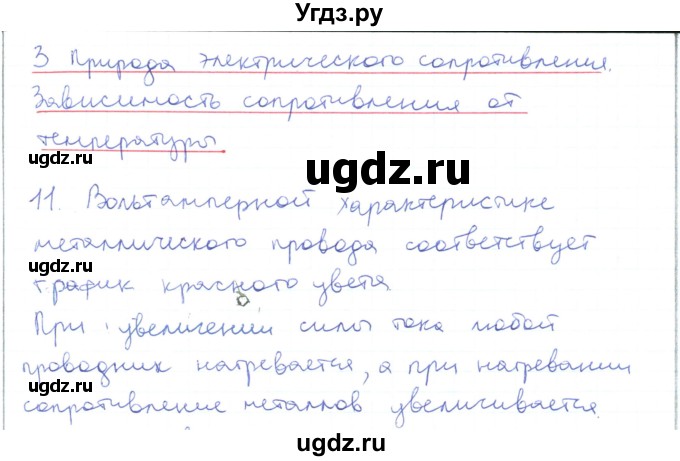 Угдз.ру
3 Природа электрического сопротивления.
Зависимость сопротивления от
температуры.
gdz.ru
ugdz.ru
11. Вольтамперной характеристике
металлического провода соответствует
ugdz.ru
график красного цвета
При увеличении силы тока любой
проводник нагревается, а при нагревании
ugdz.ru
сопротивление металлов увеличивается.
ugdz.ru